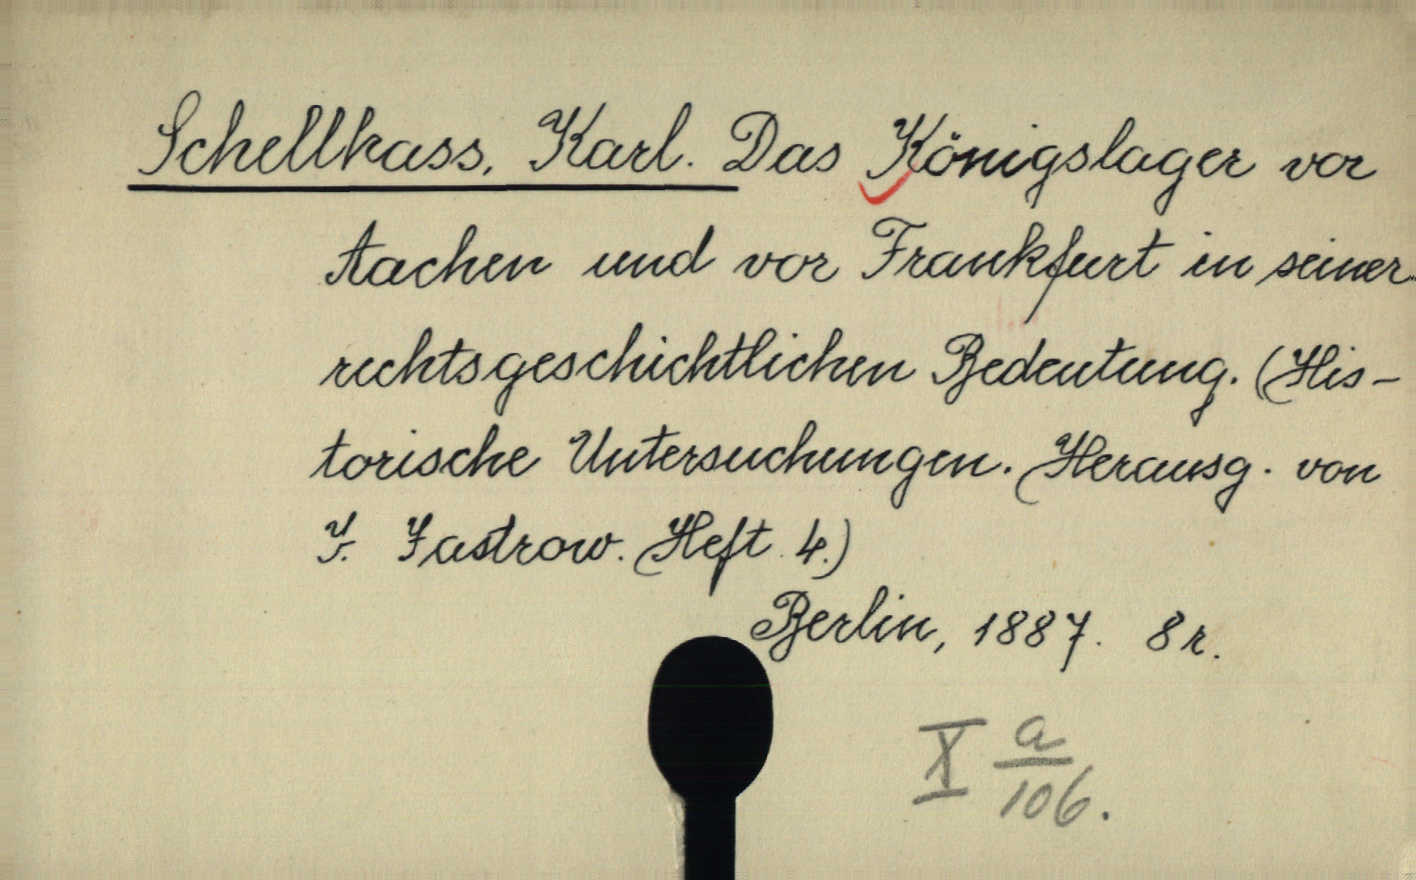 Schellhass, Karl. Das Königslager vor
Aachen und vor Frankfurt in seiner
rechtsgeschichtlichen Bedeutung. (His-
torische Untersuchungen. Herausg. von
J. Jastrow. Heft 4.)
Berlin, 1887. 8r.
X a/106.